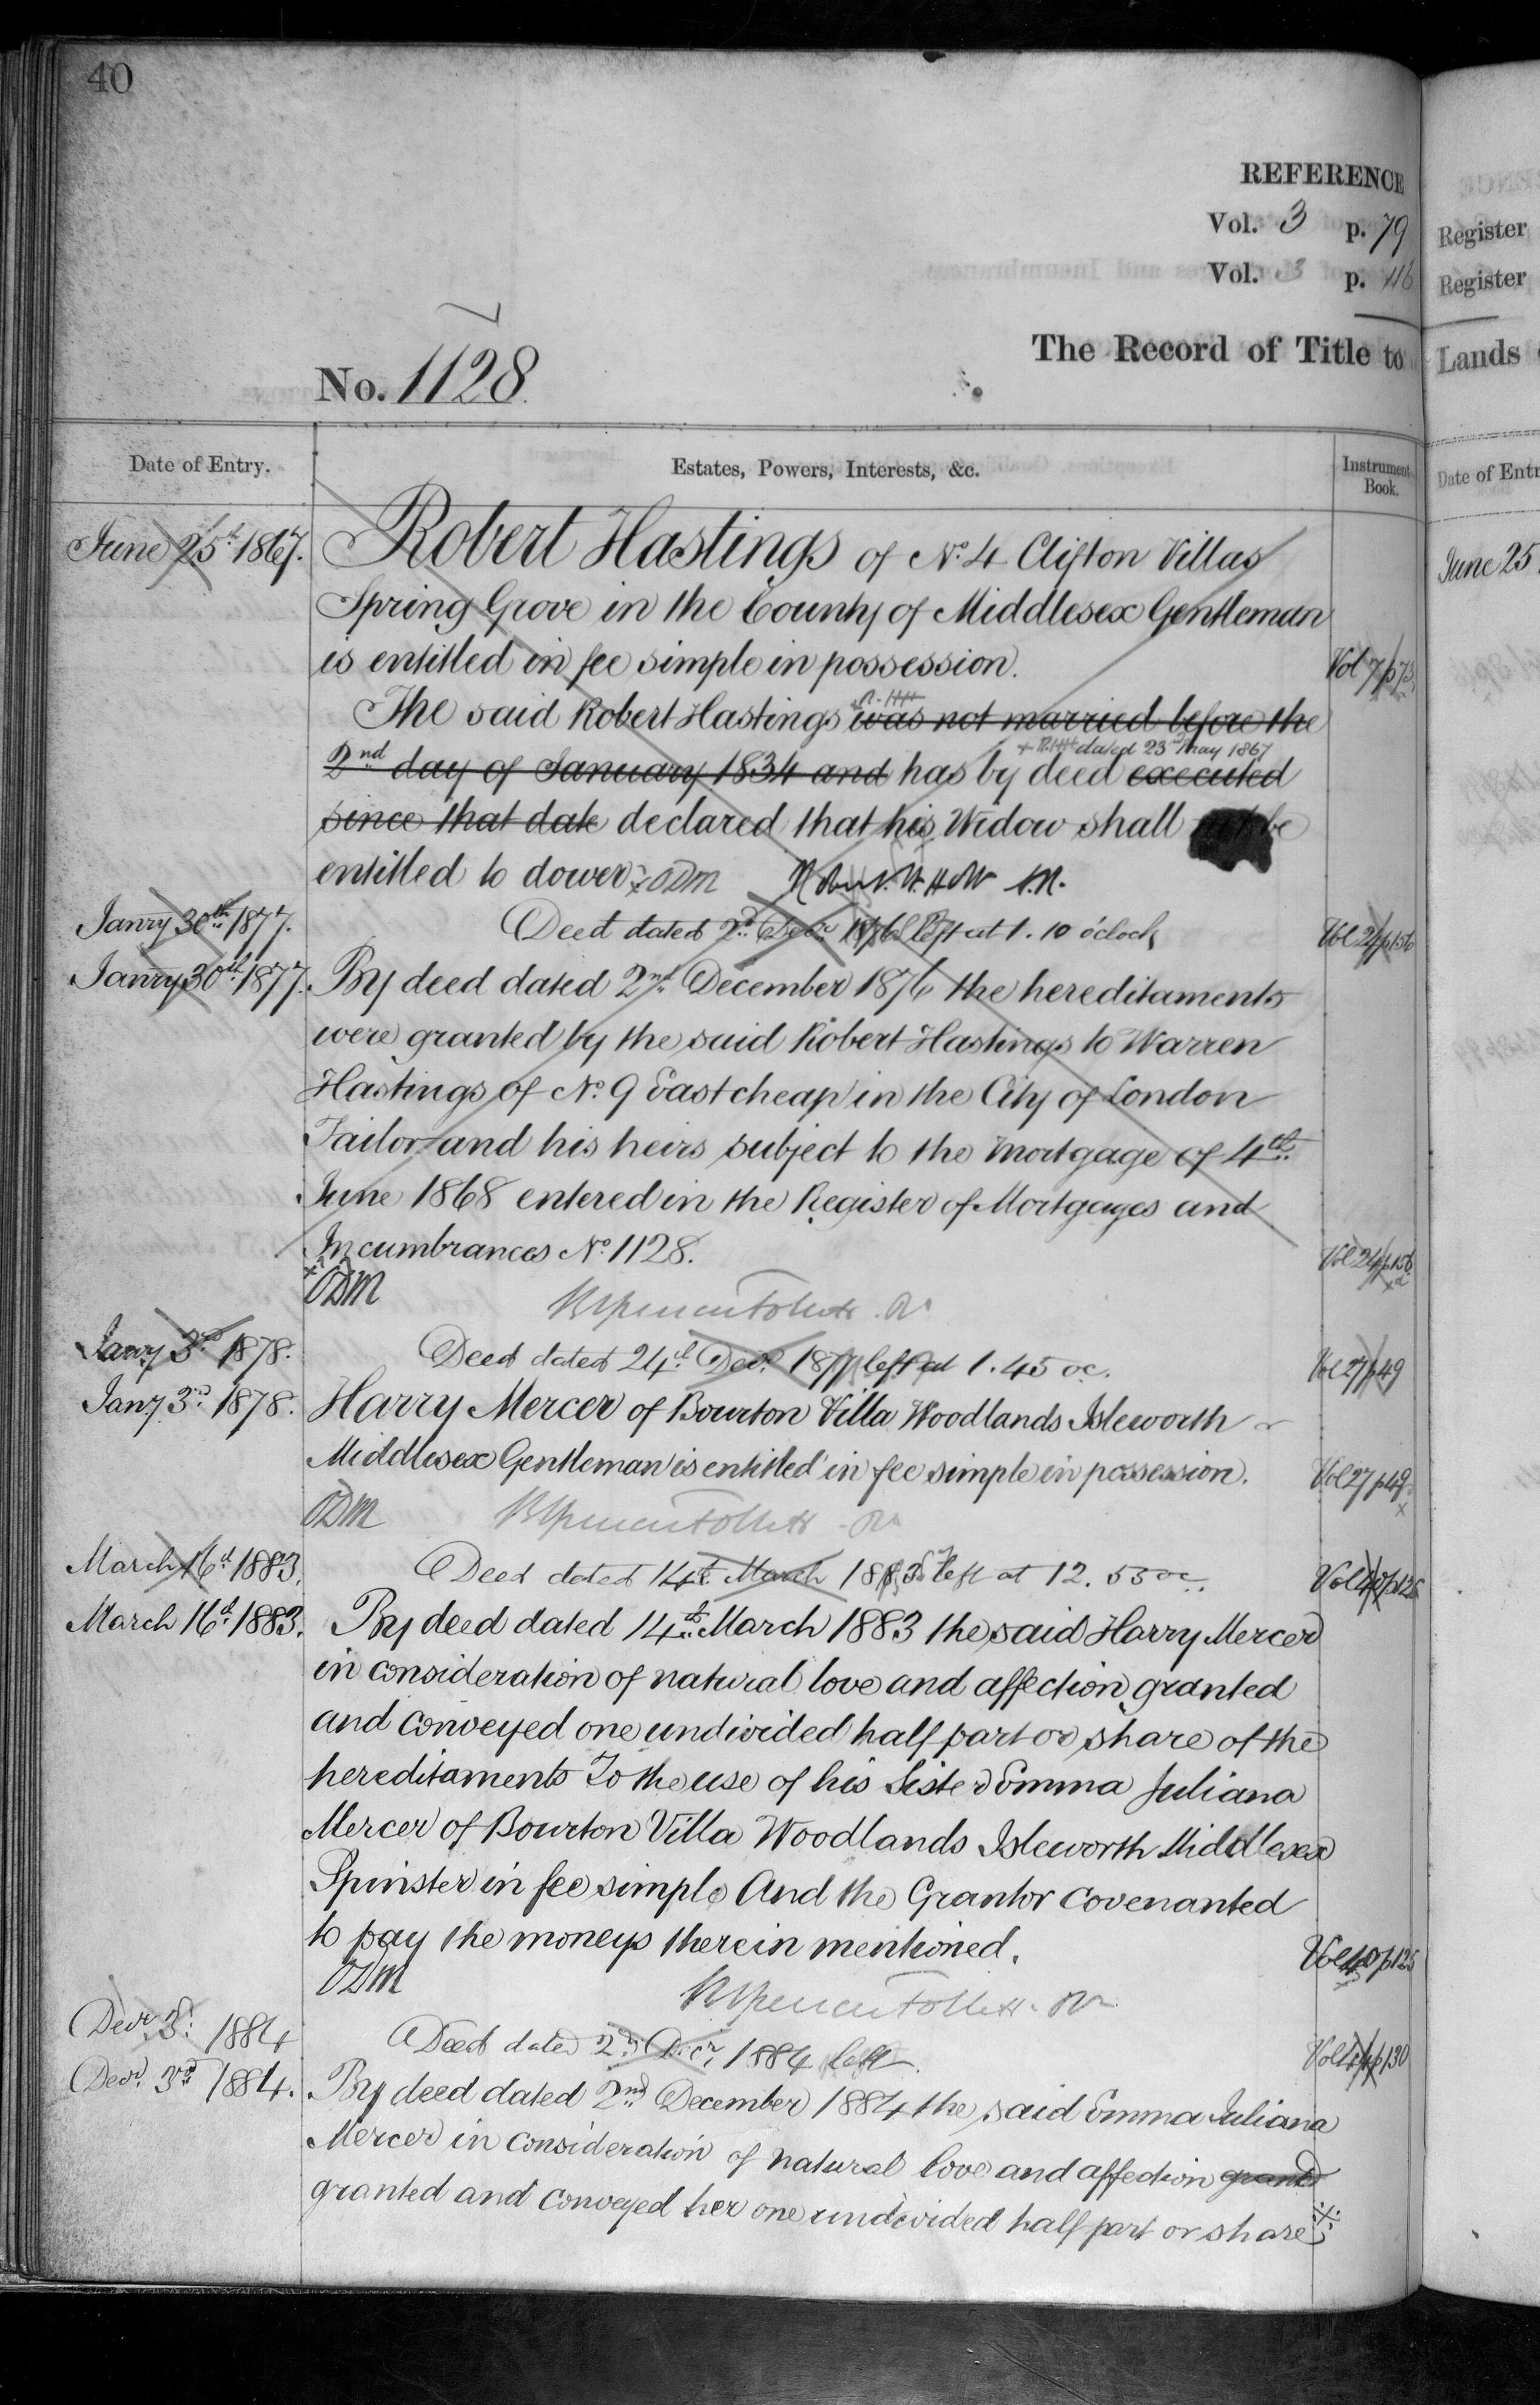 40
REFERENCE
Vol. 3 p. 79
Vol. 3 p. 116
The Record of Title to
No. 1128.
Date of Entry.
Estates, Powers, Interests, &c.
Instrument Book.
June 25th 1867.
Robert Hastings of No. 4 Clifton Villas
Spring Grove in the County of Middlesex Gentleman
is entitled in fee simple in possession.
Vol 7 p 73
The said Robert Hastings was not married before the
dated 23rd May 1867
2nd day of January 1834 and has by deed executed
since that date declared that his Widow shall not be
entitled to dower
ODM
Janry 30th 1877.
Deed dated 2nd Decr 1876 left at 1.10 o'clock
Vol 24 p 156
Janry 30th 1877.
By deed dated 2nd December 1876 the hereditaments
were granted by the said Robert Hastings to Warren
Hastings of No. 9 Eastcheap in the City of London
Tailor and his heirs subject to the Mortgage of 4th
June 1868 entered in the Register of Mortgages and
Incumbrances No. 1128.
Vol 24 p 156
ODM
Jany 3rd 1878.
Deed dated 24th Decr 1877 left at 1.45 oc.
Vol 27 p 49
Jany 3rd 1878.
Harry Mercer of Bourton Villa Woodlands Isleworth
Middlesex Gentleman is entitled in fee simple in possession.
Vol 27 p 49
ODM
March 16th 1883.
Deed dated 14th March 1883 left at 12.53 oc.
Vol 40 p 125
March 16th 1883.
By deed dated 14th March 1883 the said Harry Mercer
in consideration of natural love and affection granted
and conveyed one undivided half part or share of the
hereditaments To the use of his Sister Emma Juliana
Mercer of Bourton Villa Woodlands Isleworth Middlesex
Spinster in fee simple And the Grantor covenanted
to pay the moneys therein mentioned.
Vol 40 p 125
ODM
Decr 3rd 1884
Deed dated 2nd Decr 1884 left
p 130
Decr 3rd 1884.
By deed dated 2nd December 1884 the said Emma Juliana
Mercer in consideration of natural love and affection grante
granted and conveyed her one undivided half part or share
Register
Register
Lands
Date of Entr
June 25